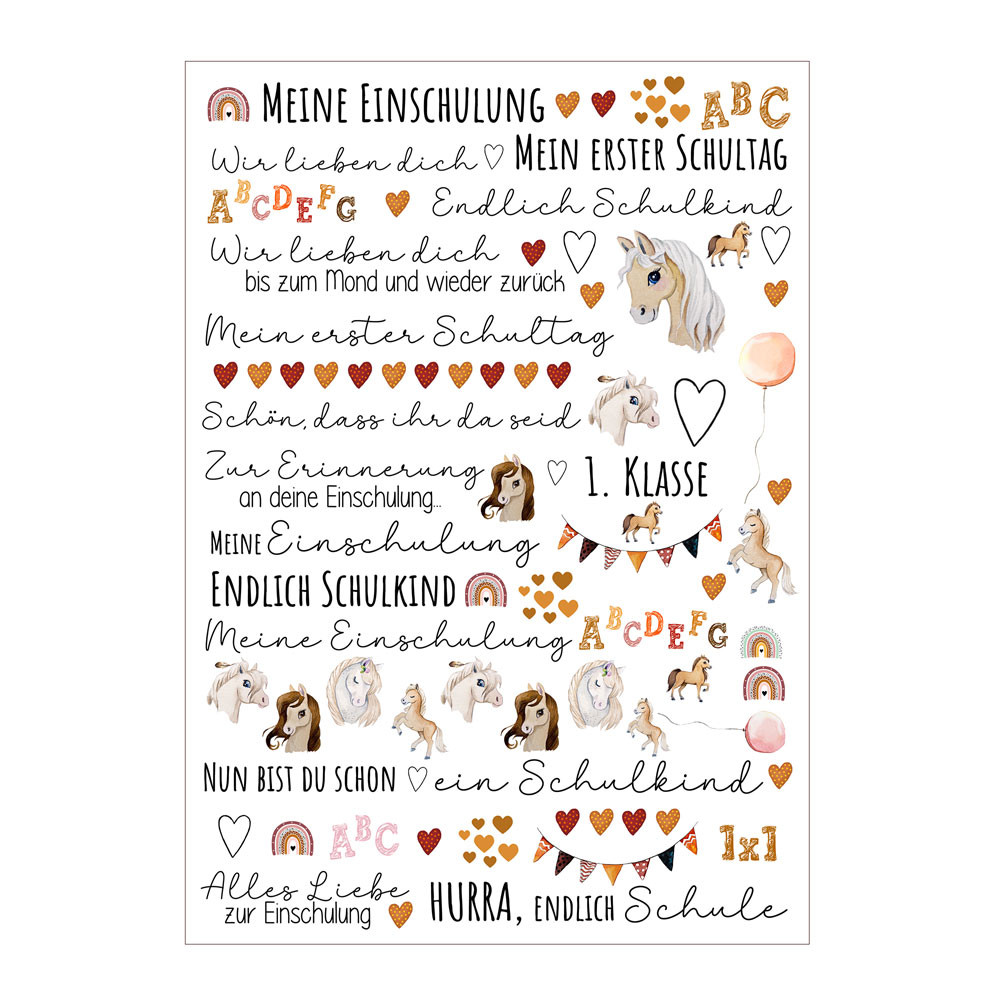 MEINE EINSCHULUNG ABC
Wir lieben dich MEIN ERSTER SCHULTAG
ABCDEFG Endlich Schulkind
Wir lieben dich
bis zum Mond und wieder zurück
Mein erster Schultag
Schön, dass ihr da seid
Zur Erinnerung
an deine Einschulung...
1. KLASSE
MEINE Einschulung
ENDLICH SCHULKIND
Meine Einschulung ABCDEFG
NUN BIST DU SCHON ein Schulkind
ABC 1x1
Alles Liebe
zur Einschulung
HURRA, ENDLICH Schule